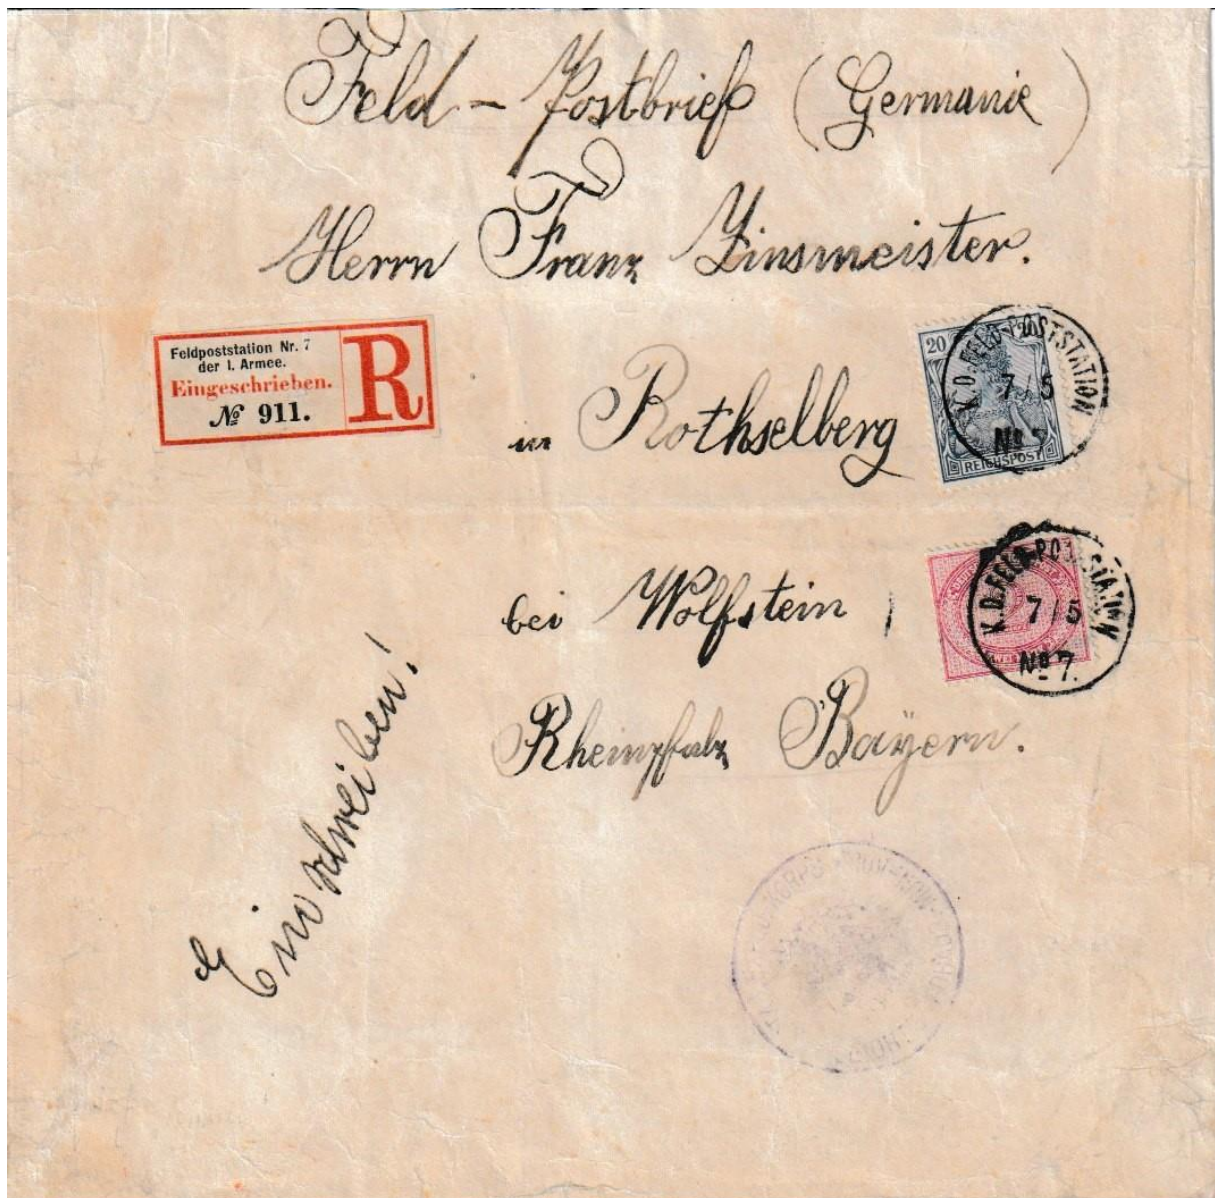 Feld-Postbrief (Germanie)
Herrn Franz Zinsmeister.
Feldpoststation Nr. 7
der I. Armee.
Eingeschrieben.
№ 911.
R
in Rothselberg
20 20
REICHSPOST
K.D. FELD-POSTSTATION
7/5
No 7
bei Wolfstein,
K.D. FELD-POSTSTATION
7/5
No 7.
Rheinpfalz Bayern.
Einschreiben!